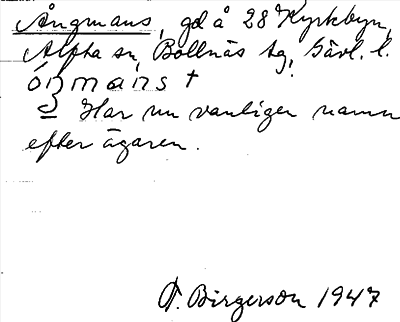 Ångmans, gd å 28 Kyrkbyn,
Alfta sn, Bollnäs tg, Gävl. l.
óŋmàns †
Har nu vanligen namn
efter ägaren.
T. Birgerson 1947